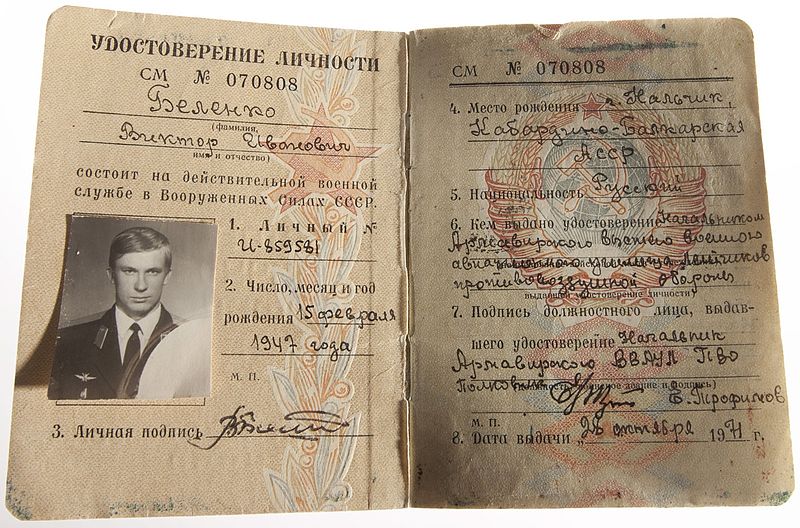 УДОСТОВЕРЕНИЕ ЛИЧНОСТИ
СМ № 070808
Беленко
(фамилия,
Виктор Иванович
имя и отчество)
состоит на действительной военной
службе в Вооруженных Силах СССР.
1. Личный №
И-859581
2. Число, месяц и год
рождения 15 февраля
1947 года
М. П.
3. Личная подпись
СМ № 070808
4. Место рождения г. Нальчик,
Кабардино-Балкарская
АССР
5. Национальность Русский
6. Кем выдано удостоверение Начальником
Армавирского высшего военного
авиационного училища лётчиков
противовоздушной обороны
выдавшей удостоверение личности)
7. Подпись должностного лица, выдав-
шего удостоверение Начальник
Армавирского ВВАУЛ ПВО
Полковник воинское звание и подпись)
Е. Трофимов
М. П.
8. Дата выдачи „26 октября 1971 г.